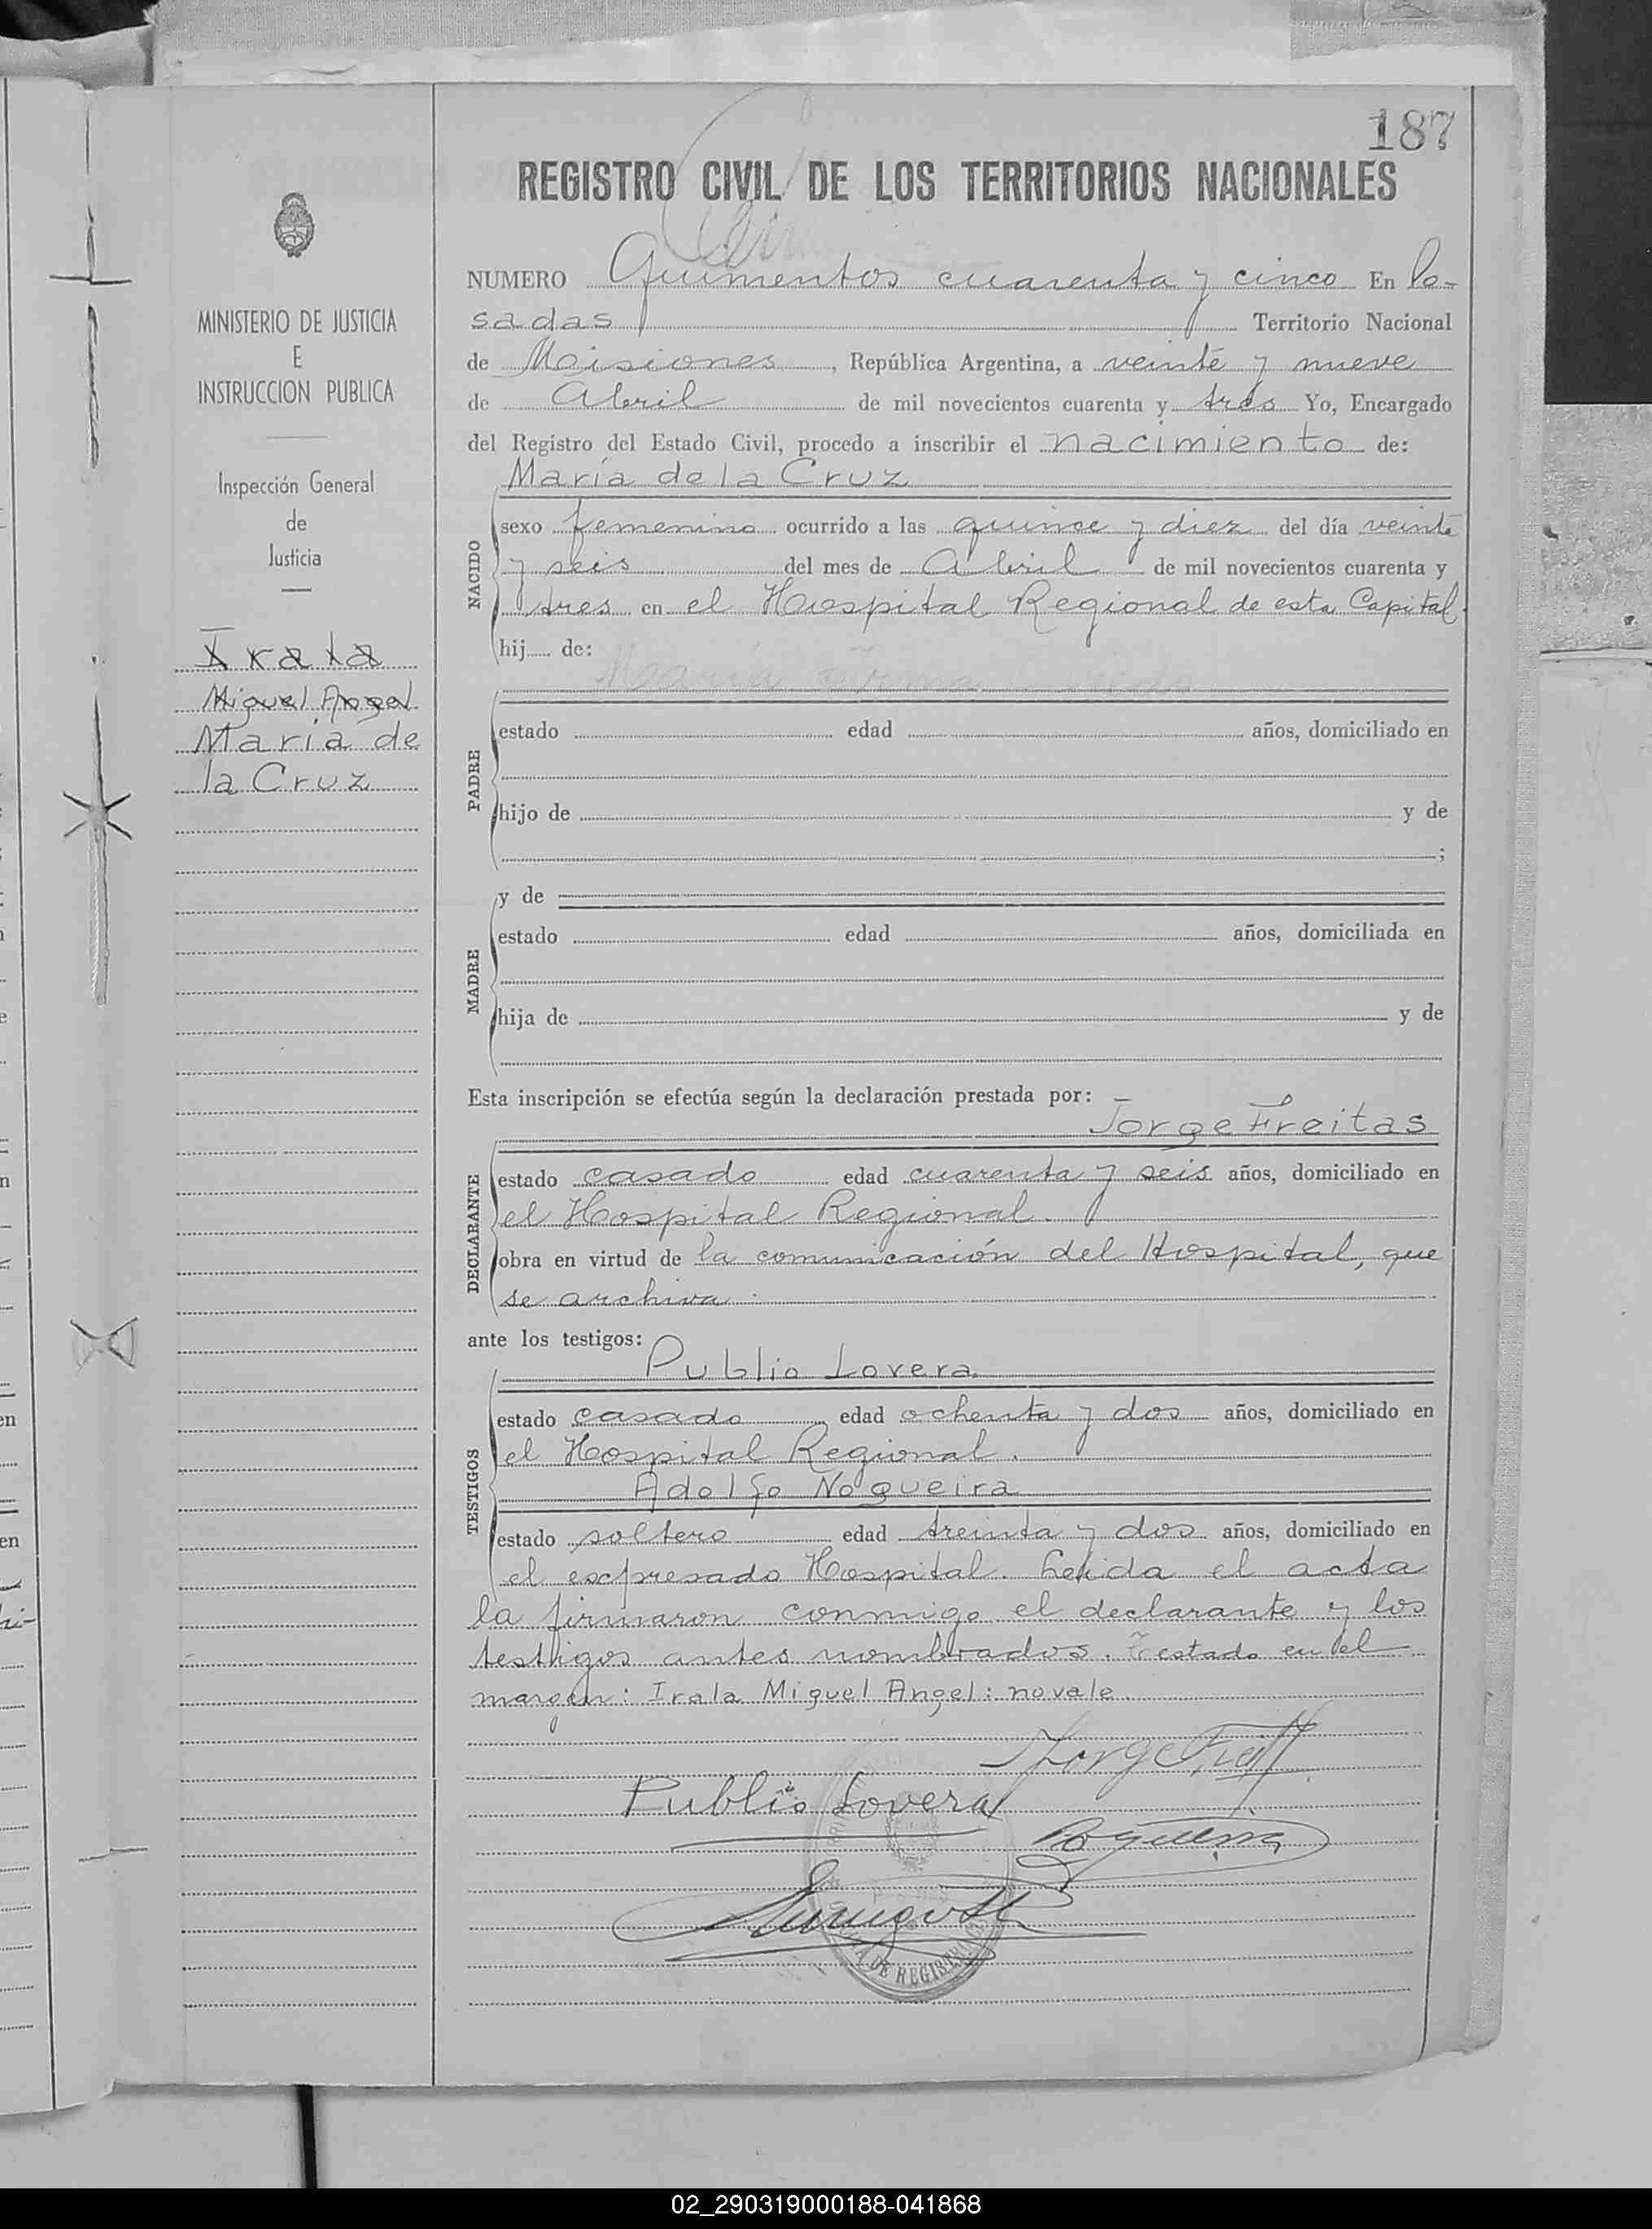 187
REGISTRO CIVIL DE LOS TERRITORIOS NACIONALES
MINISTERIO DE JUSTICIA
E
INSTRUCCION PUBLICA
Inspección General
de
Justicia
Irala
Miguel Angel
María de
la Cruz
NUMERO Quinientos cuarenta y cinco En Po-
sadas Territorio Nacional
de Misiones, República Argentina, a veinte y nueve
de Abril de mil novecientos cuarenta y tres Yo, Encargado
del Registro del Estado Civil, procedo a inscribir el nacimiento de:
María de la Cruz
NACIDO
sexo femenino ocurrido a las quince y diez del día veinte
y seis del mes de Abril de mil novecientos cuarenta y
tres en el Hospital Regional de esta Capital.
hij de:
PADRE
estado edad años, domiciliado en
hijo de y de
;
MADRE
y de
estado edad años, domiciliada en
hija de y de
Esta inscripción se efectúa según la declaración prestada por:
Jorge Freitas
DECLARANTE
estado casado edad cuarenta y seis años, domiciliado en
el Hospital Regional.
obra en virtud de la comunicación del Hospital, que
se archiva.
ante los testigos:
Publio Lovera
TESTIGOS
estado casado edad ochenta y dos años, domiciliado en
el Hospital Regional.
Adolfo Nogueira
estado soltero edad treinta y dos años, domiciliado en
el expresado Hospital. Leída el acta
la firmaron conmigo el declarante y los
testigos antes nombrados. Testado en el
margen: Irala Miguel Angel: no vale.
Jorge Freitas
Publio Lovera
Nogueira
DE REGISTRO
02_290319000188-041868